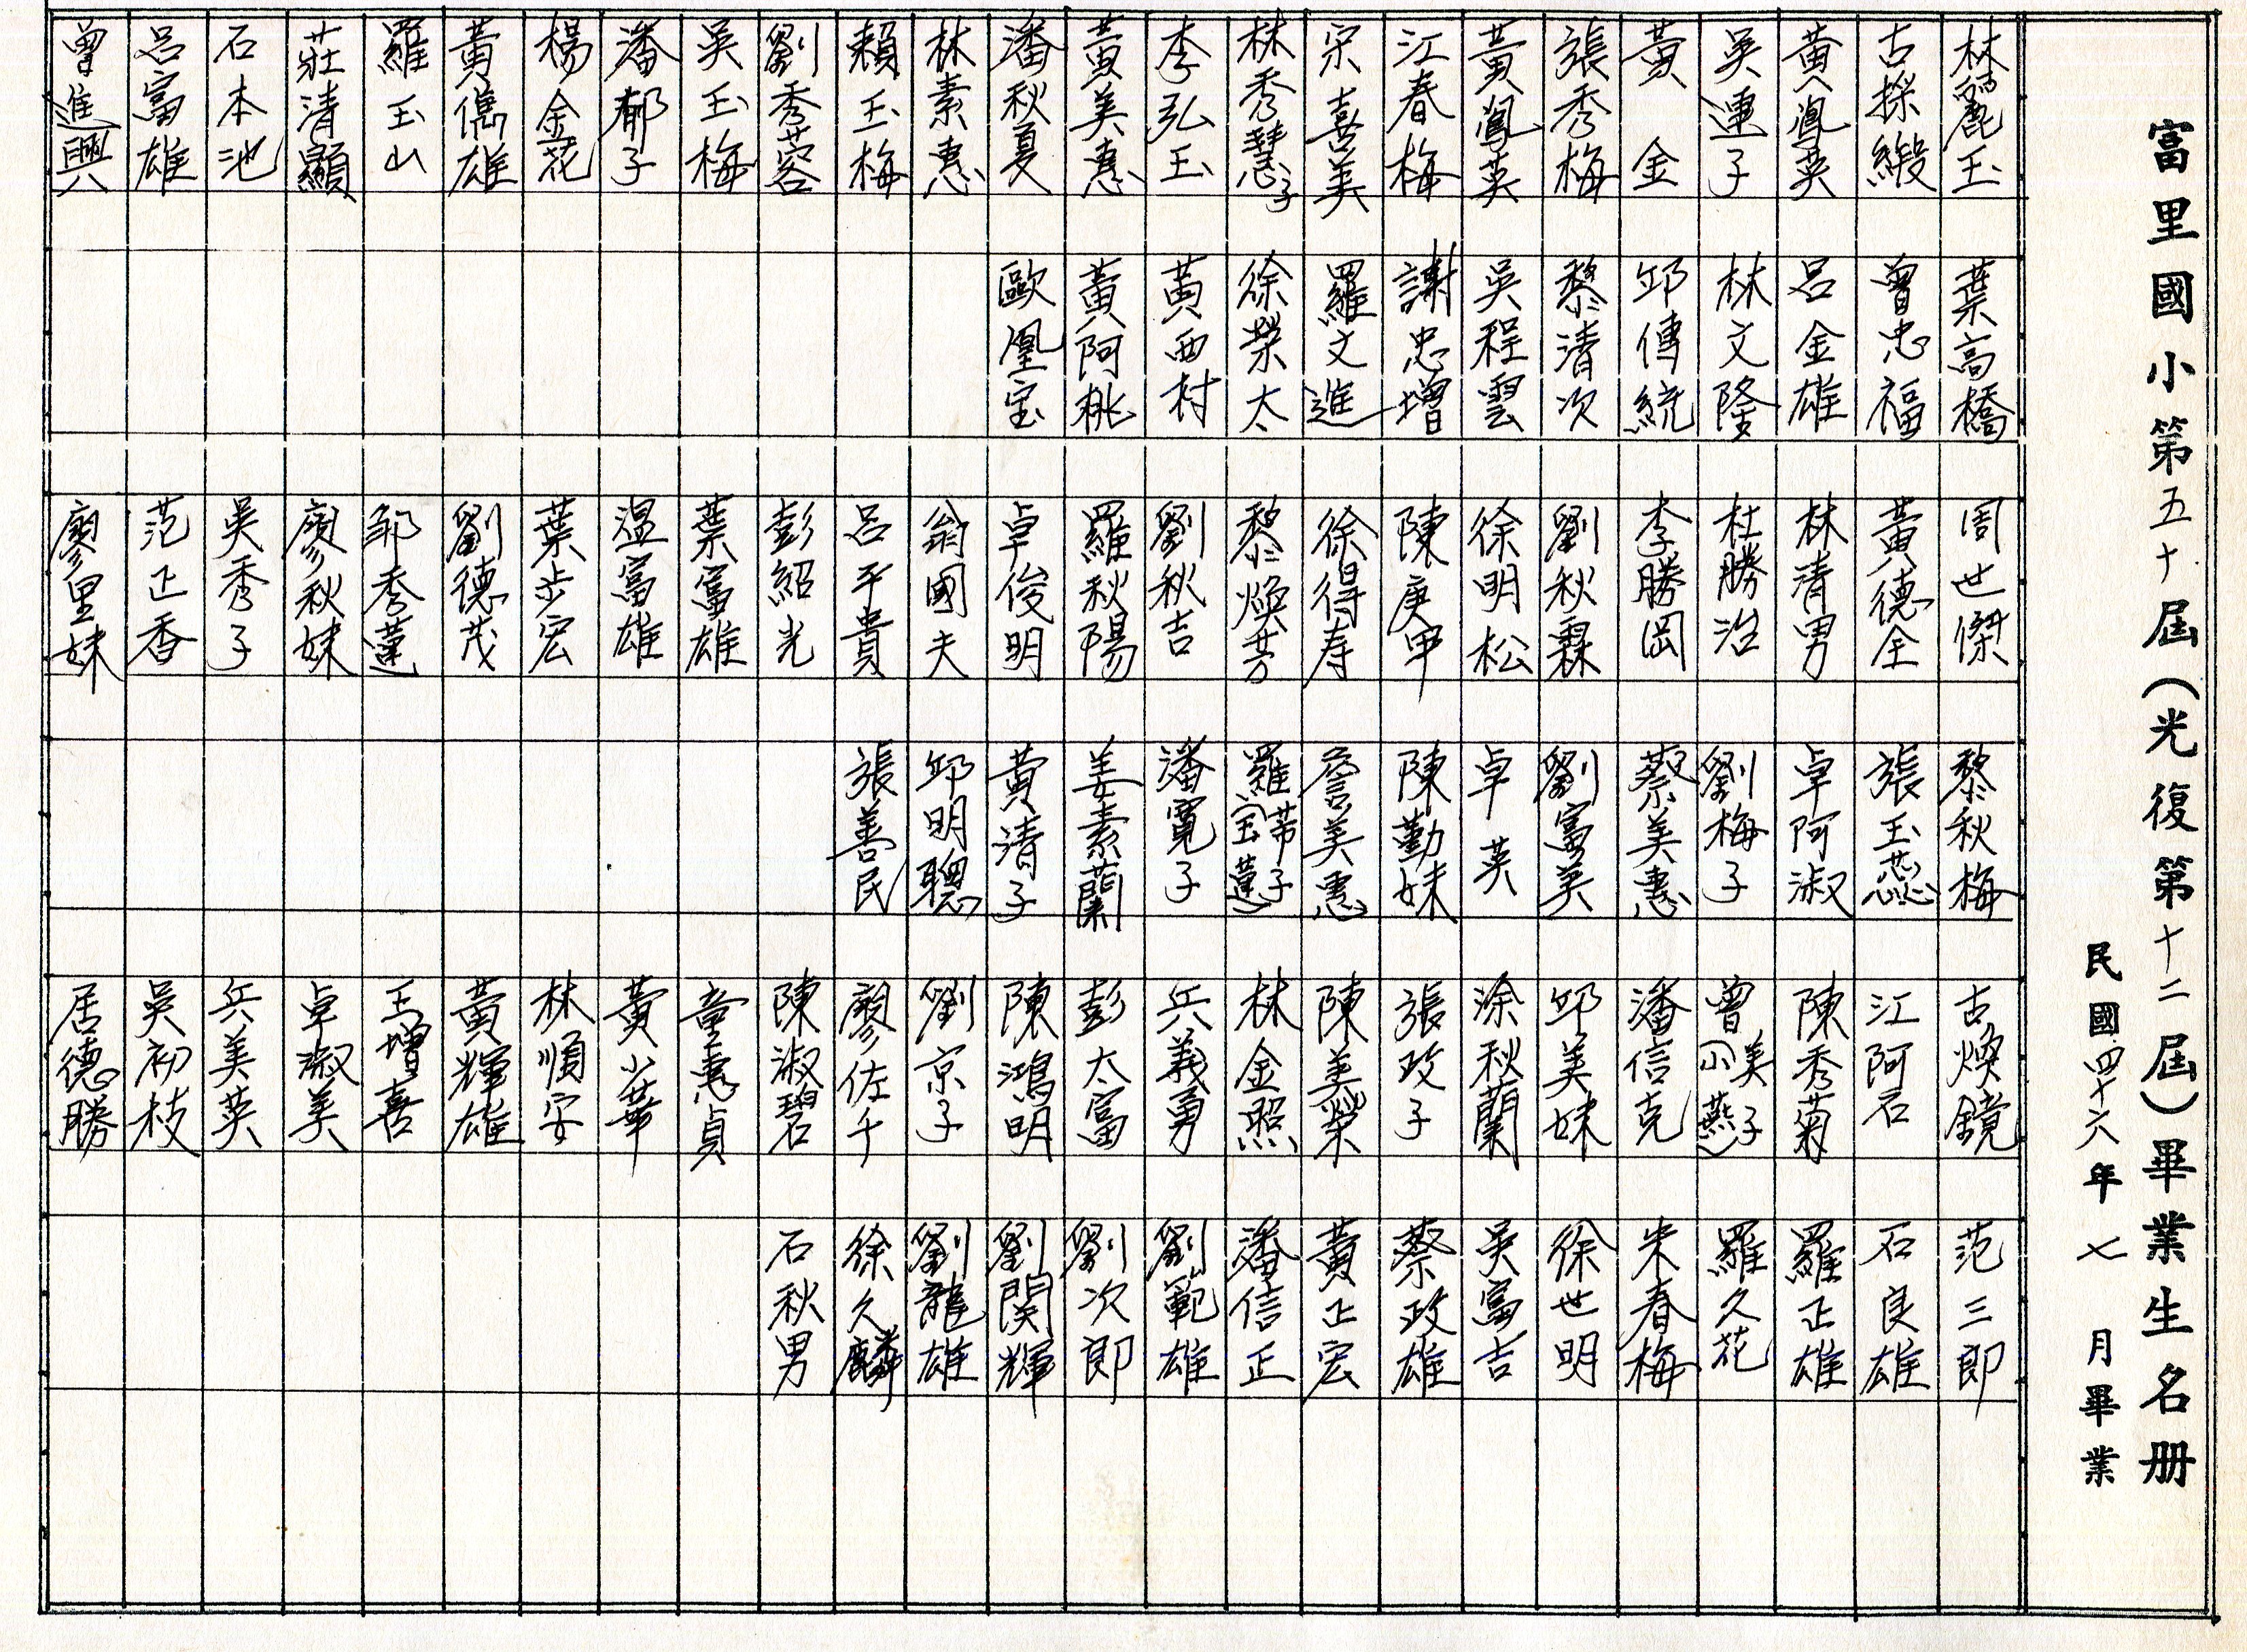 富里國小第五十屆(光復第十二屆)畢業生名册
民國四十六年七月畢業
林麗玉
古探緞
黃鳳英
吳連子
黃金
張秀梅
黃鳳英
江春梅
宋喜美
林秀慧子
李弘玉
黃美惠
潘秋夏
林素惠
賴玉梅
劉秀蓉
吳玉梅
潘郁子
楊金花
黃儁雄
羅玉山
莊清顯
石本池
呂富雄
曾進興
葉高橋
曾忠福
呂金雄
林文隆
邱傳統
黎清次
吳程雲
謝忠增
羅文進
徐榮太
黃西村
黃阿桃
歐凰宝
周世傑
黃德全
林清男
杜勝治
李勝岡
劉秋霖
徐明松
陳庚甲
徐得寿
黎煥芳
劉秋吉
羅秋陽
卓俊明
翁國夫
呂平貴
彭紹光
葉富雄
溫富雄
葉步宏
劉德茂
邹秀蓮
廖秋妹
吳秀子
范正香
廖里妹
黎秋梅
張玉蕊
卓阿淑
劉梅子
蔡美惠
劉富美
卓英
陳勤妹
詹美惠
羅蒂子(玉蓮)
潘寬子
姜素蘭
黃清子
邱明聰
張善民
古煥鏡
江阿石
陳秀菊
曾美子(小燕)
潘信克
邱美妹
涂秋蘭
張政子
陳美榮
林金照
兵義勇
彭太富
陳鴻明
劉京子
廖佐千
陳淑碧
童惠貞
黃小華
林順安
黃輝雄
王增喜
卓淑美
兵美英
吳初枝
居德勝
范三郎
石良雄
羅正雄
羅久花
朱春梅
徐世明
吳富吉
蔡政雄
黃正宏
潘信正
劉範雄
劉次郎
劉関輝
劉龍雄
徐久麟
石秋男